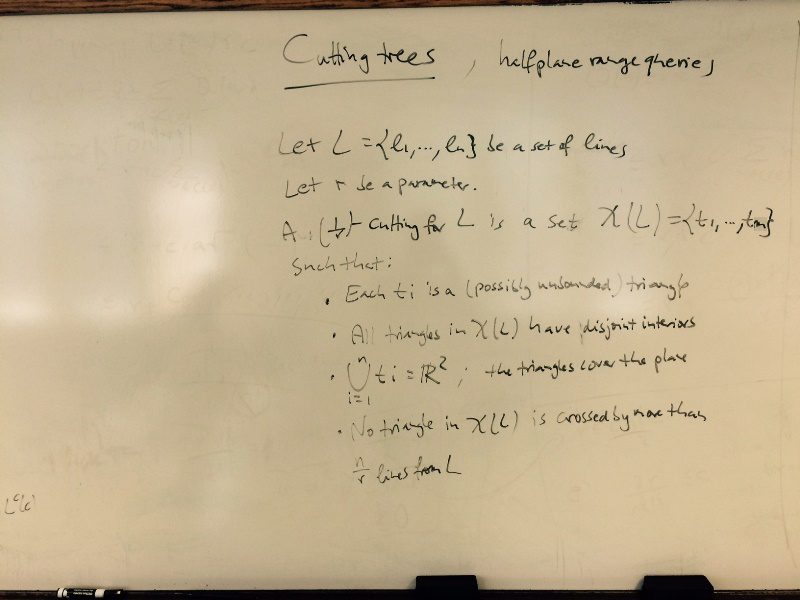 Cutting trees, halfplane range queries
Let L = {l₁,...,lₙ} be a set of lines
Let r be a parameter.
A (1/r)-cutting for L is a set X(L) = {t₁,...,tₘ}
such that:
• Each ti is a (possibly unbounded) triangle
• All triangles in X(L) have disjoint interiors
• ⋃ⁿᵢ₌₁ ti = ℝ²; the triangles cover the plane
• No triangle in X(L) is crossed by more than
n/r lines from L